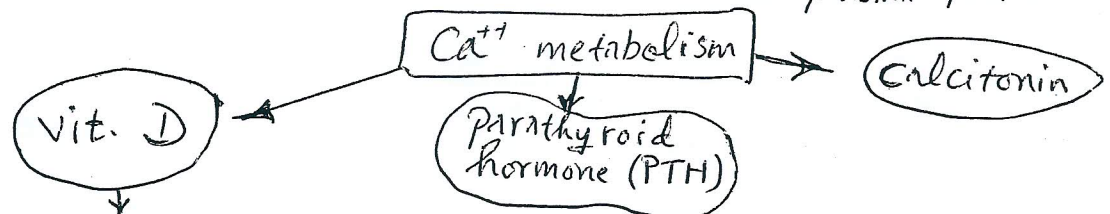 Ca++ metabolism
Calcitonin
Vit. D
parathyroid
hormone (PTH)